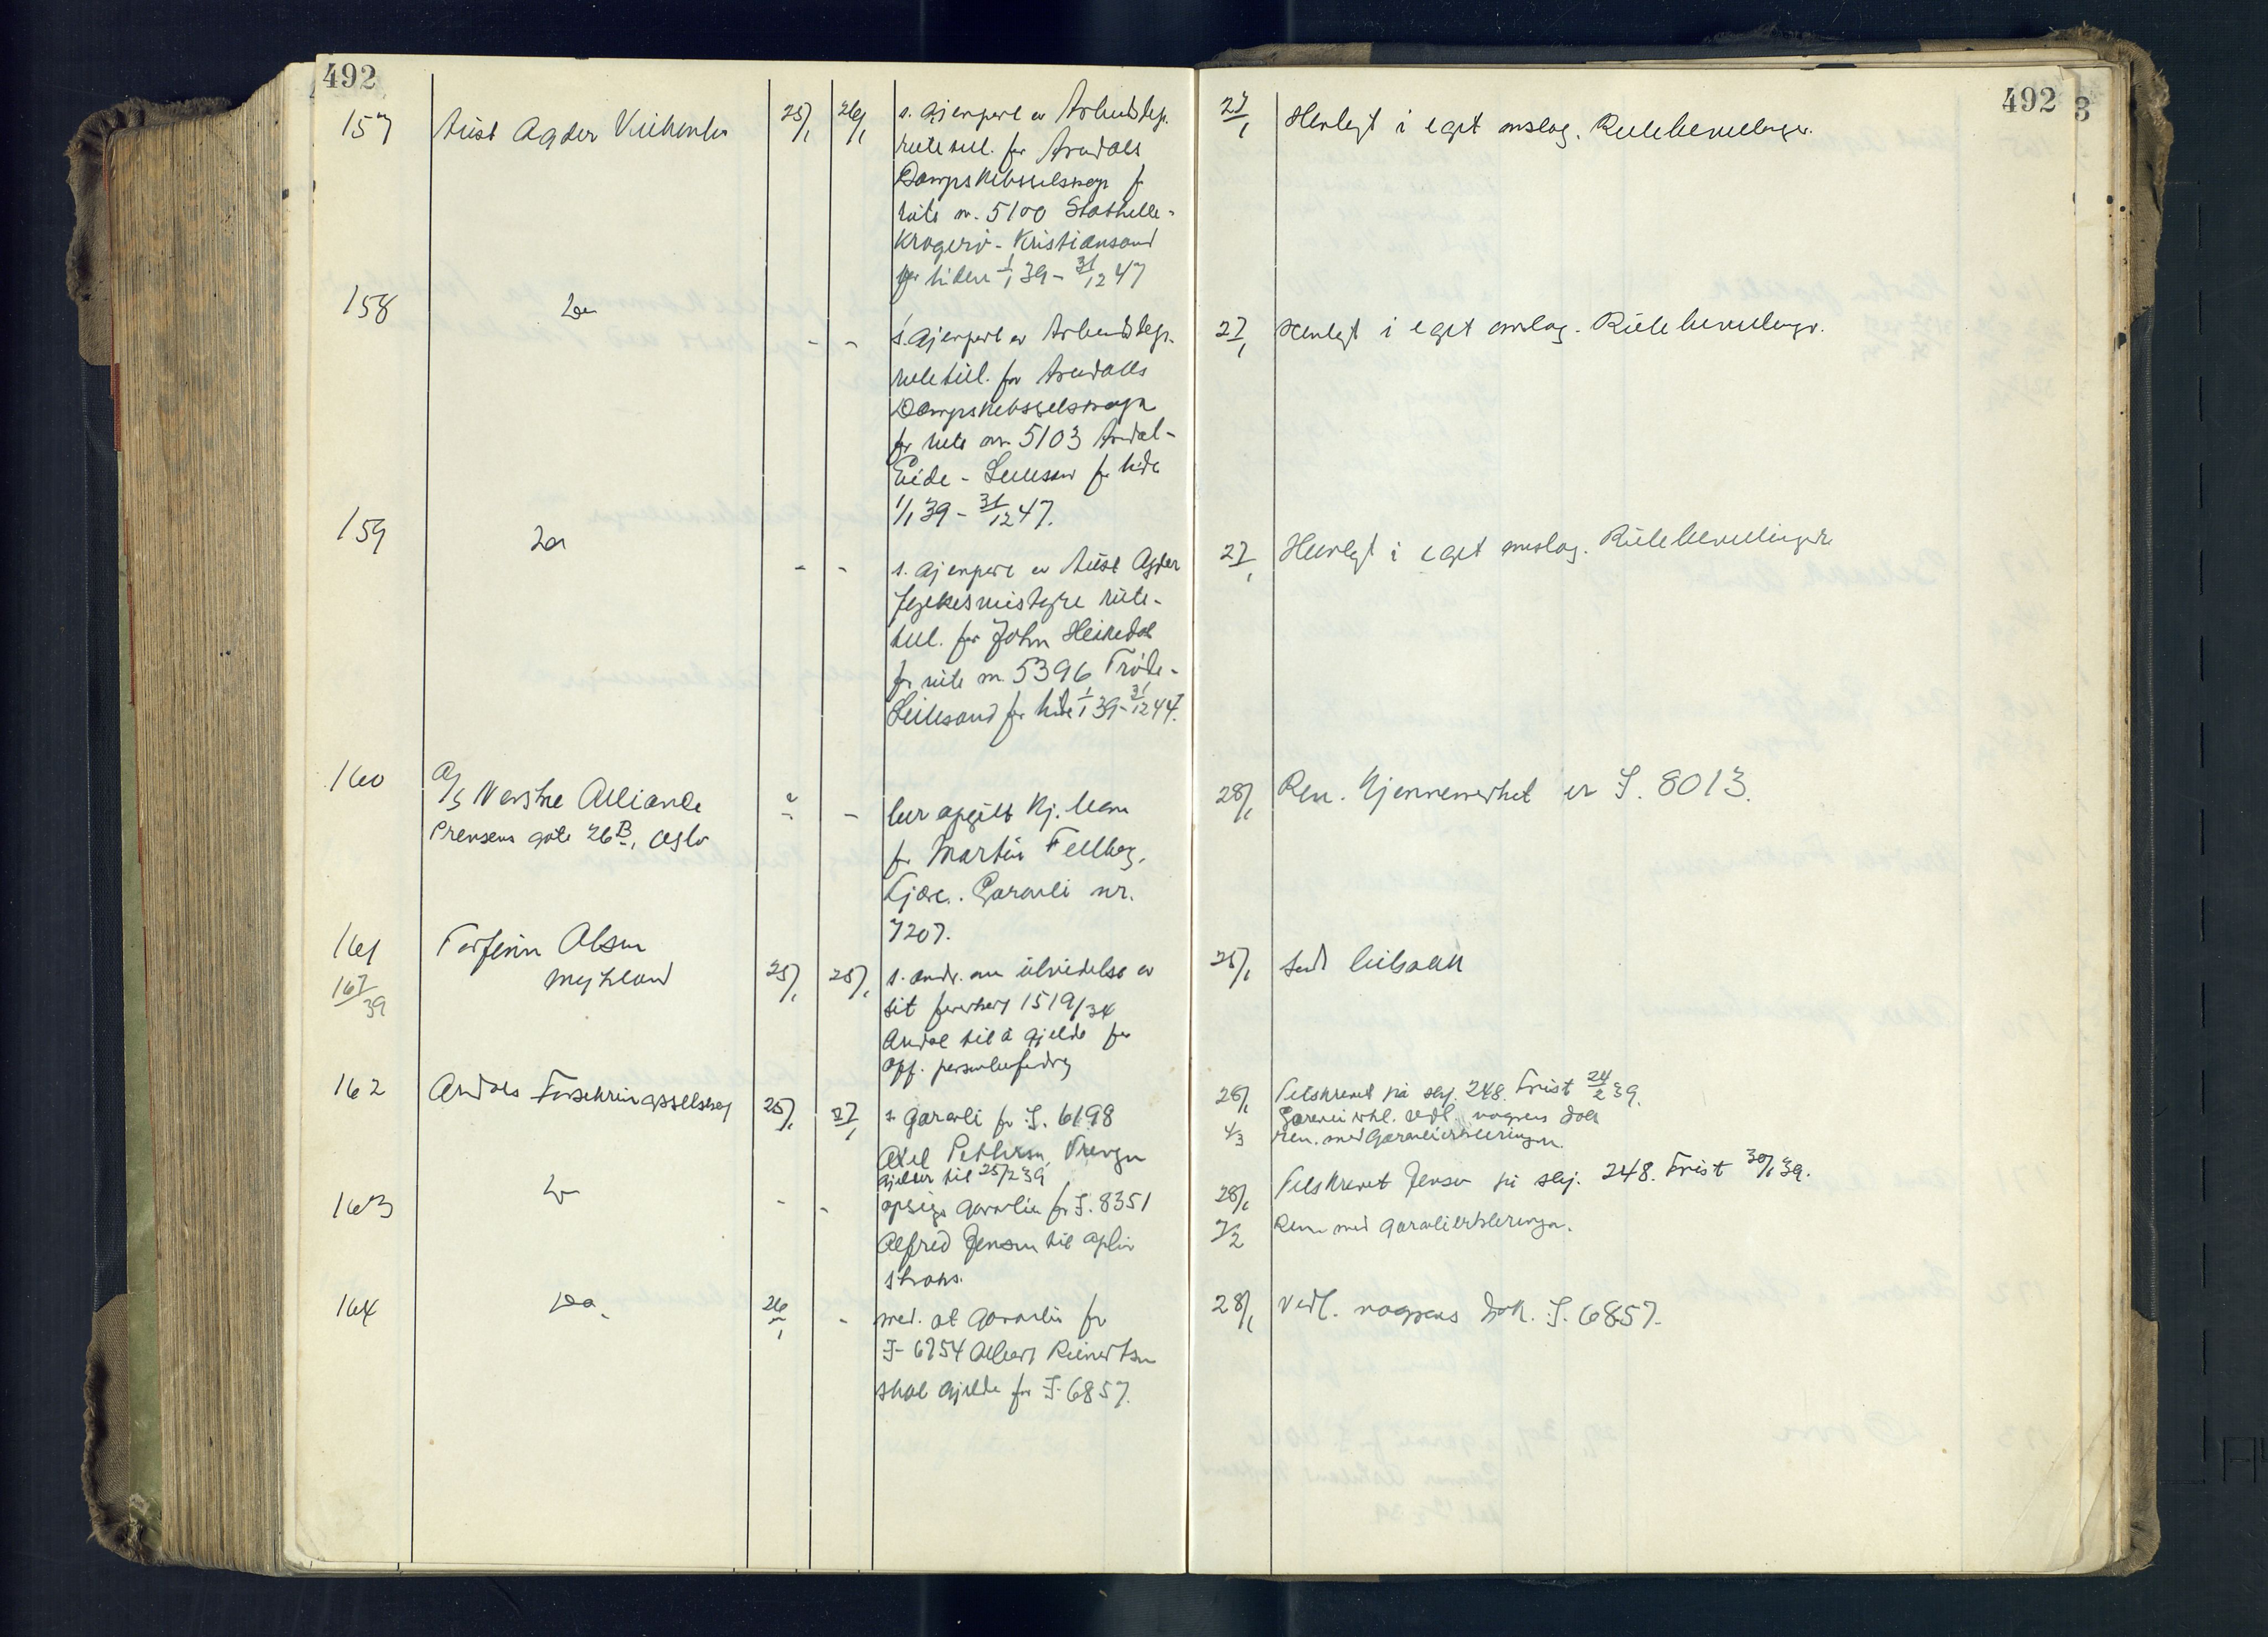 492
492
3
157
Aust Agder Veikontor
25/1
26/1
s. gjenpart av Arbeidsdep.
rutetill. for Arendals
Dampskibsselskap f
rute nr. 5100 Stathelle-
Kragerø - Kristiansand
for tiden 1/1 39 - 31/12 47
27/1
Henlagt i eget omslag. Rutebevillinger.
158
Do
- -
s. gjenpart av Arbeidsdep.
rutetill. for Arendals
Dampskibsselskap
for rute nr. 5103 Arendal-
Eide - Lillesand for tiden
1/1 39 - 31/12 47.
27/1
Henlagt i eget omslag. Rutebevillinger.
159
Do
- -
s. gjenpart av Aust Agder
fylkesvistyre rute-
till. for John Heimdal
for rute nr. 5396
Lillesand for tiden 1/1 39 - 31/12 44.
27/1
Henlagt i eget omslag. Rutebevillinger
160
A/S Norske Alliance
Prinsens gate 26B, Oslo
- -
ber opgitt kj. merke
for Martin Fellberg,
Garanti nr.
7207.
28/1
Ren. kjennemerket er I. 8013.
161
167/39
Torfinn Olsen
Mykland
25/1
25/1
s. andr. om utvidelse av
sit førerkort 1519/34
Arendal til å gjelde for
off. personbefordring
25/1
sendt
162
Arendals Forsikringsselskap
25/1
27/1
s. garanti for I. 6198
Axel Pettersen,
gjelder til 25/2 39
28/1
Tilskrevet på skj. 248. Frist 24/2 39.
4/3
Garanti vedl. vognens dok
Ren. med Garantierklæringen.
163
Do
- -
opsiger garantien for I. 8351
Alfred Jensen til ophør
straks.
28/1
Tilskrevet Jensen på skj. 248. Frist 30/1 39.
7/2
Ren med garantierklæringen.
164
Do.
26/1
-
med. at garantien for
I- 6754 Albert Reinertsen
skal gjelde for I- 6857.
28/1
Vedl. vognens dok. I. 6857.